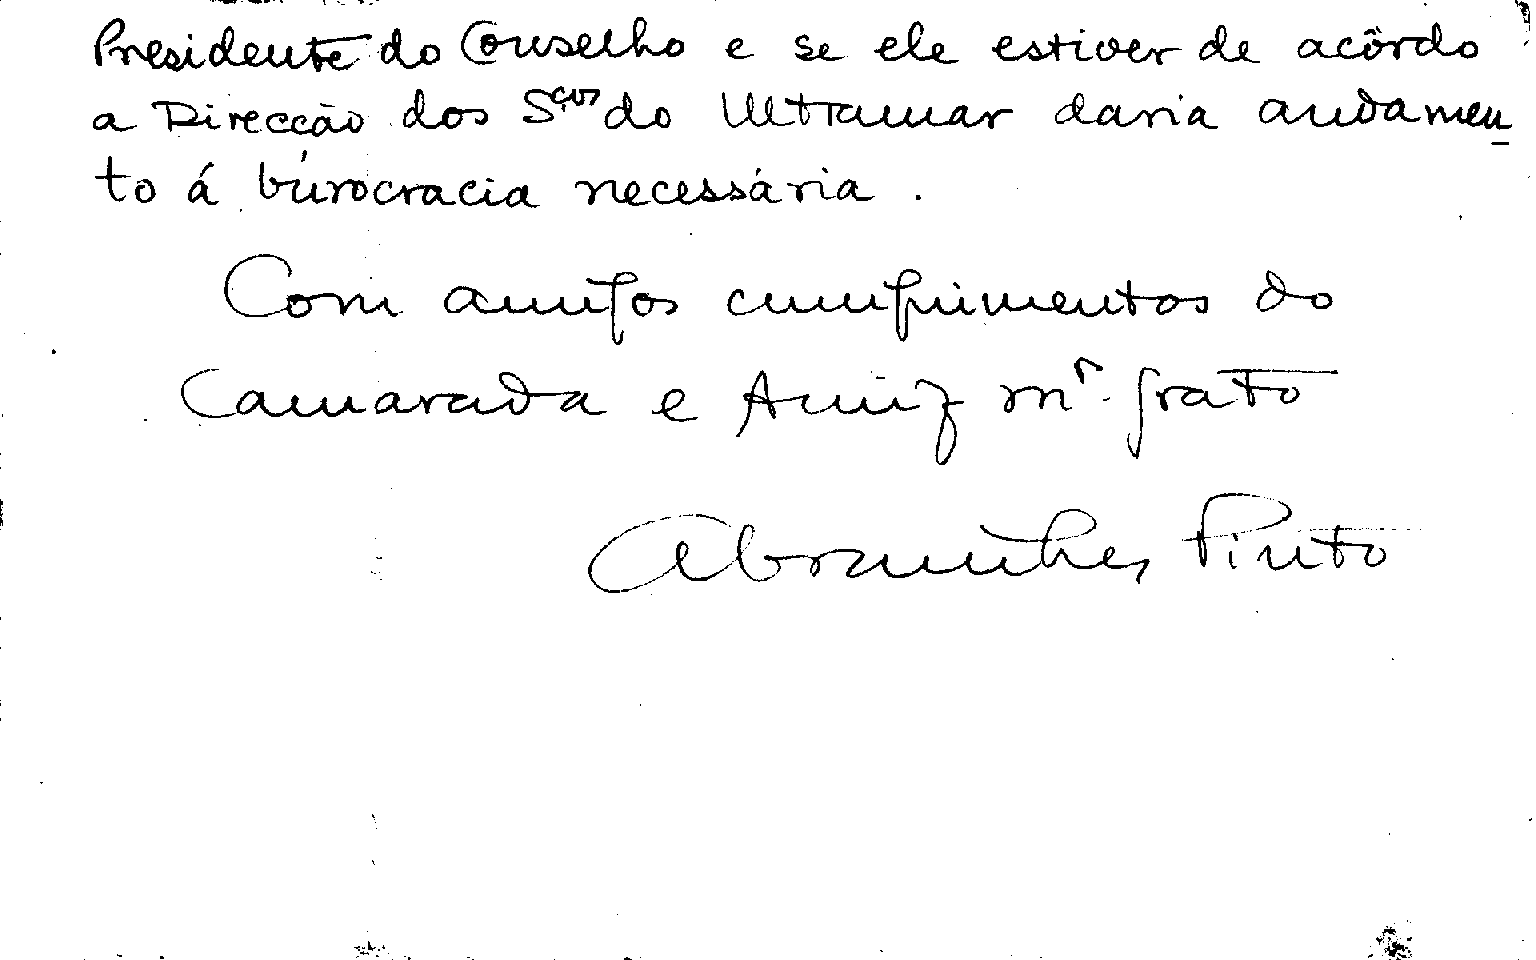 Presidente do Conselho e se ele estiver de acôrdo
a Direcção dos Sços do Ultramar daria andamen
to á búrocracia necessária.
Com amigos cumprimentos do
Camarada e Amigo mt. grato
Abranches Pinto